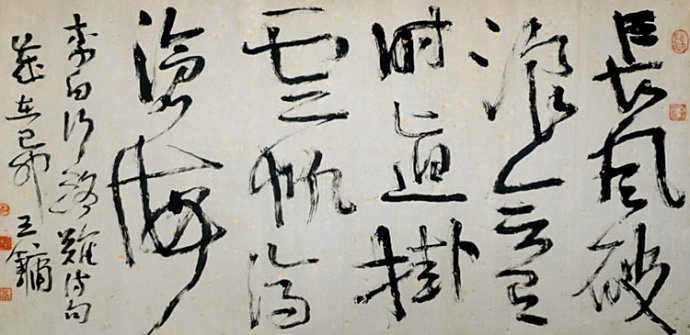 長風破
浪会有
时直掛
雲帆濟
滄海
李白行路難詩句
歲在己卯 王鏞